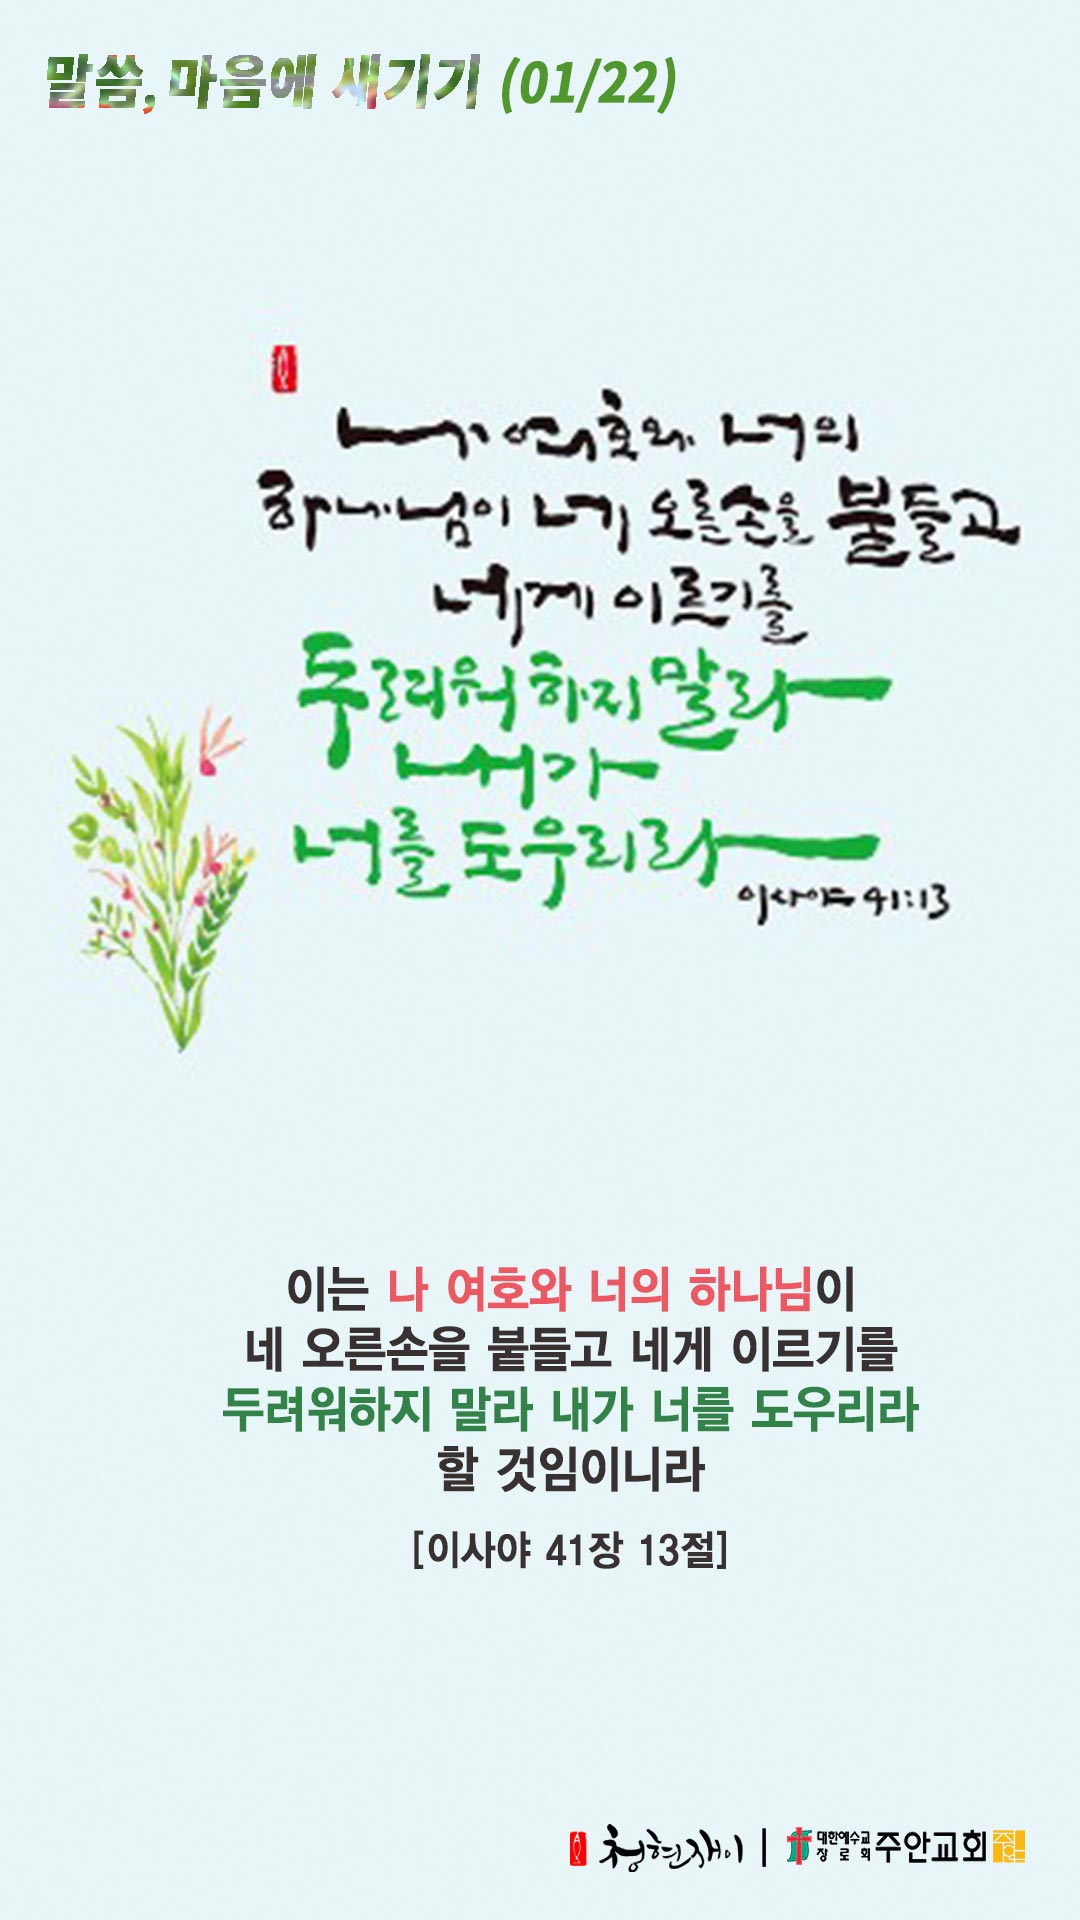 말씀, 마음에 새기기 (01/22)
나 여호와 너의
하나님이 네 오른손을 붙들고
네게 이르기를
두려워하지 말라
내가
너를 도우리라
이사야 41:13
이는 나 여호와 너의 하나님이
네 오른손을 붙들고 네게 이르기를
두려워하지 말라 내가 너를 도우리라
할 것임이니라
[이사야 41장 13절]
청현재이 | 대한예수교 장로회 주안교회